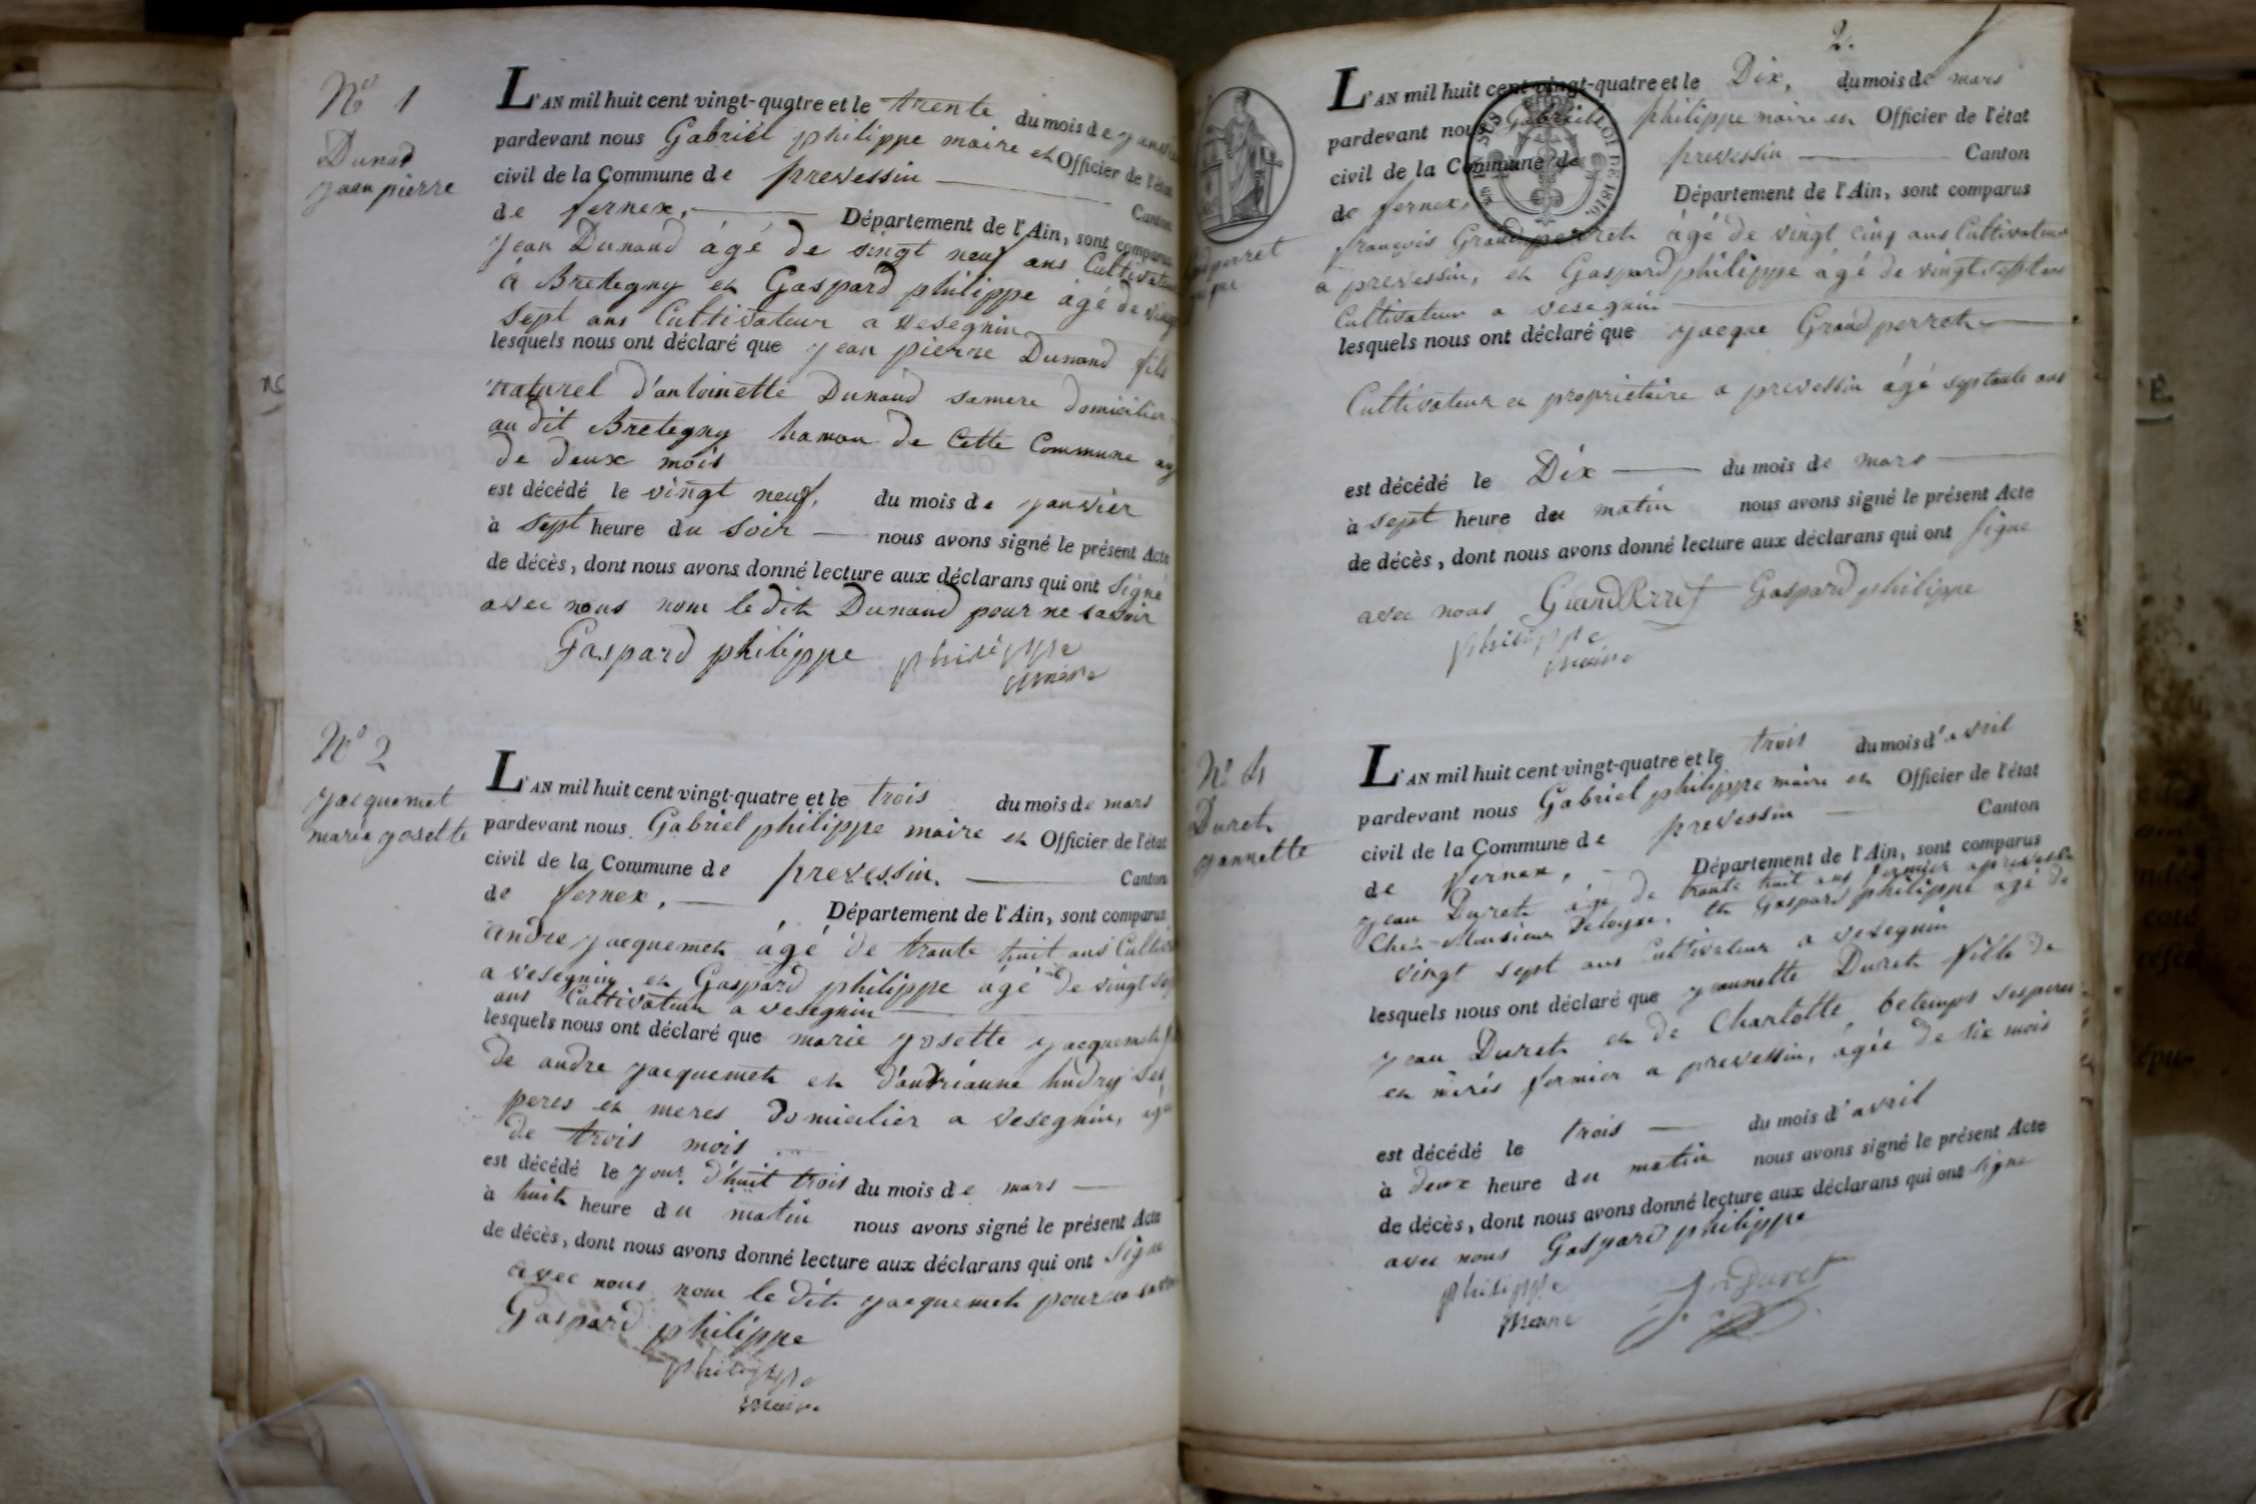 N° 1
Dunad
jean pierre
L'AN mil huit cent vingt-quatre et le trente du mois de
pardevant nous Gabriel philippe maire et Officier de l'état
civil de la Commune de prevessin Canton
de fernex, Département de l'Ain, sont comparus
jean Dunand âgé de vingt neuf ans Cultivateur
à Bretegny et Gaspard philippe âgé de vingt
sept ans Cultivateur a vesegnin
lesquels nous ont déclaré que jean pierre Dunand fils
naturel d'antoinette Dunand samere domicilier
au dit Bretegny hamau de Cette Commune
de deux mois
est décédé le vingt neuf, du mois de janvier
à sept heure du soir nous avons signé le présent Acte
de décès, dont nous avons donné lecture aux déclarans qui ont Signé
avec nous nom le dit Dunand pour ne savoir
Gaspard philippe philippe
maire
N° 2
jacquemet
marie josette
L'AN mil huit cent vingt-quatre et le trois du mois de mars
pardevant nous Gabriel philippe maire et Officier de l'état
civil de la Commune de prevessin. Canton
de fernex, Département de l'Ain, sont comparus
andre jacquemet âgé de trante huit ans
a vesegnin et Gaspard philippe âgé de vingt sep
ans Cultivateur a vesegnin
lesquels nous ont déclaré que marie josette jacquemet
de andre jacquemet et d'andrianne hudry ses
peres et meres domicilier a vesegnin,
de trois mois
est décédé le jour d'huit trois du mois de mars
à huit heure du matin nous avons signé le présent Acte
de décès, dont nous avons donné lecture aux déclarans qui ont Signé
avec nous nom le dit jacquemet pour ne
Gaspard philippe
philippe
maire
2.
L'AN mil huit cent vingt-quatre et le Dix, du mois de mars
pardevant nous Gabriel philippe maire et Officier de l'état
civil de la Commune de prevessin Canton
de fernex, Département de l'Ain, sont comparus
françois Grandperret âgé de vingt cinq ans Cultivateur
a prevessin, et Gaspard philippe âgé de vingt sept ans
Cultivateur a vesegnin
lesquels nous ont déclaré que jacque Grandperret
Cultivateur et proprietaire a prevessin âgé septante ans
est décédé le Dix du mois de mars
à sept heure du matin nous avons signé le présent Acte
de décès, dont nous avons donné lecture aux déclarans qui ont signe
avec nous GrandPerret Gaspard philippe
philippe
maire
LOI DE 1816.
N° 4
Duret
jannette
L'AN mil huit cent vingt-quatre et le trois du mois d'avril
pardevant nous Gabriel philippe maire et Officier de l'état
civil de la Commune de prevessin Canton
de fernex, Département de l'Ain, sont comparus
jean Duret âgé de trante huit ans fermier a prevessin
Chez Monsieur et Gaspard philippe âgé de
vingt sept ans Cultivateur a vesegnin
lesquels nous ont déclaré que jeannette Duret fille de
jean Duret et de Charlotte betemps
et mères fermier a prevessin, âgée de six mois
est décédé le trois du mois d'avril
à deux heure du matin nous avons signé le présent Acte
de décès, dont nous avons donné lecture aux déclarans qui ont signe
avec nous Gaspard philippe
philippe
maire
Duret